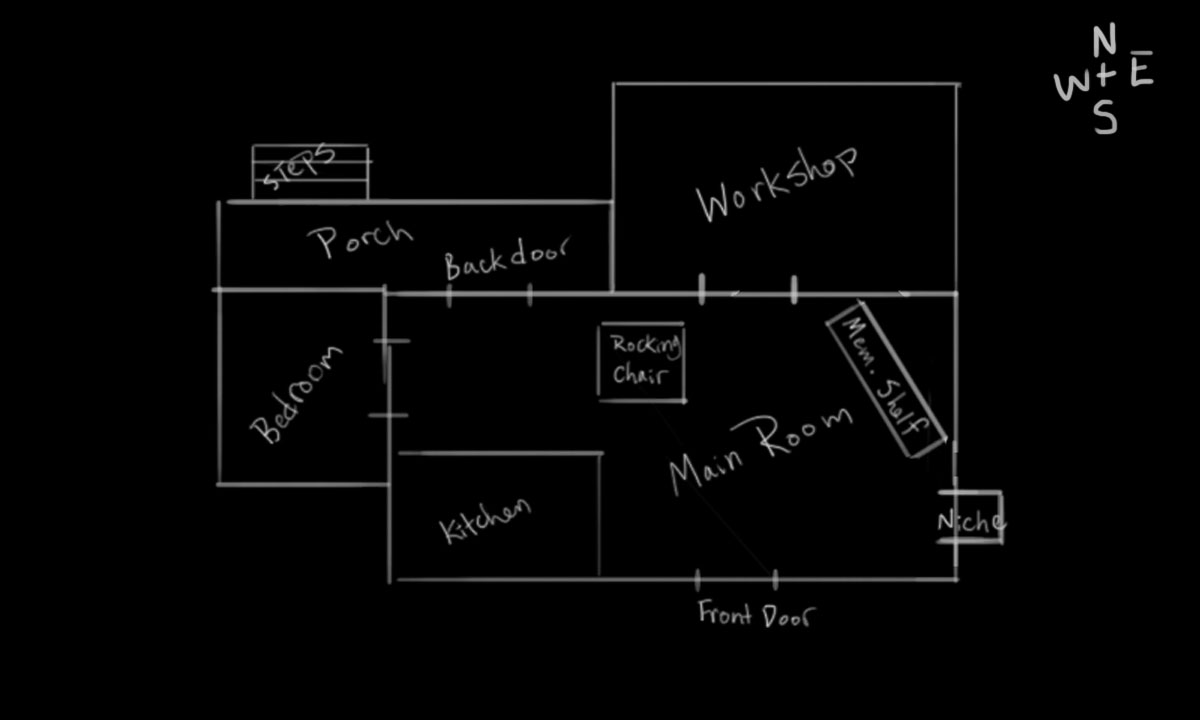 N
W + E
S
Workshop
STEPS
Porch
Backdoor
Bedroom
Rocking
Chair
Mem. Shelf
Main Room
Kitchen
Niche
Front Door